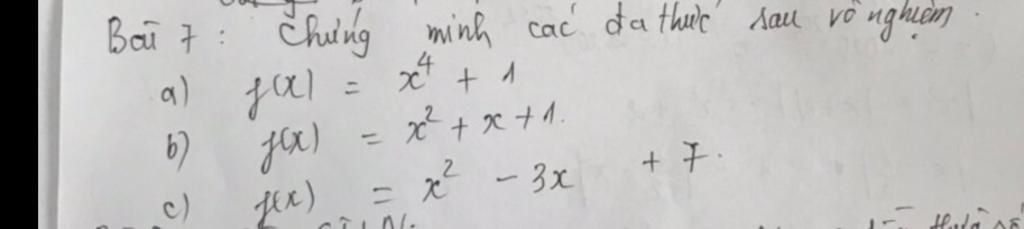 Bài 7 : Chứng minh các đa thức sau vô nghiệm.
a) f(x) = x⁴ + 1
b) f(x) = x² + x + 1.
c) f(x) = x² - 3x + 7.